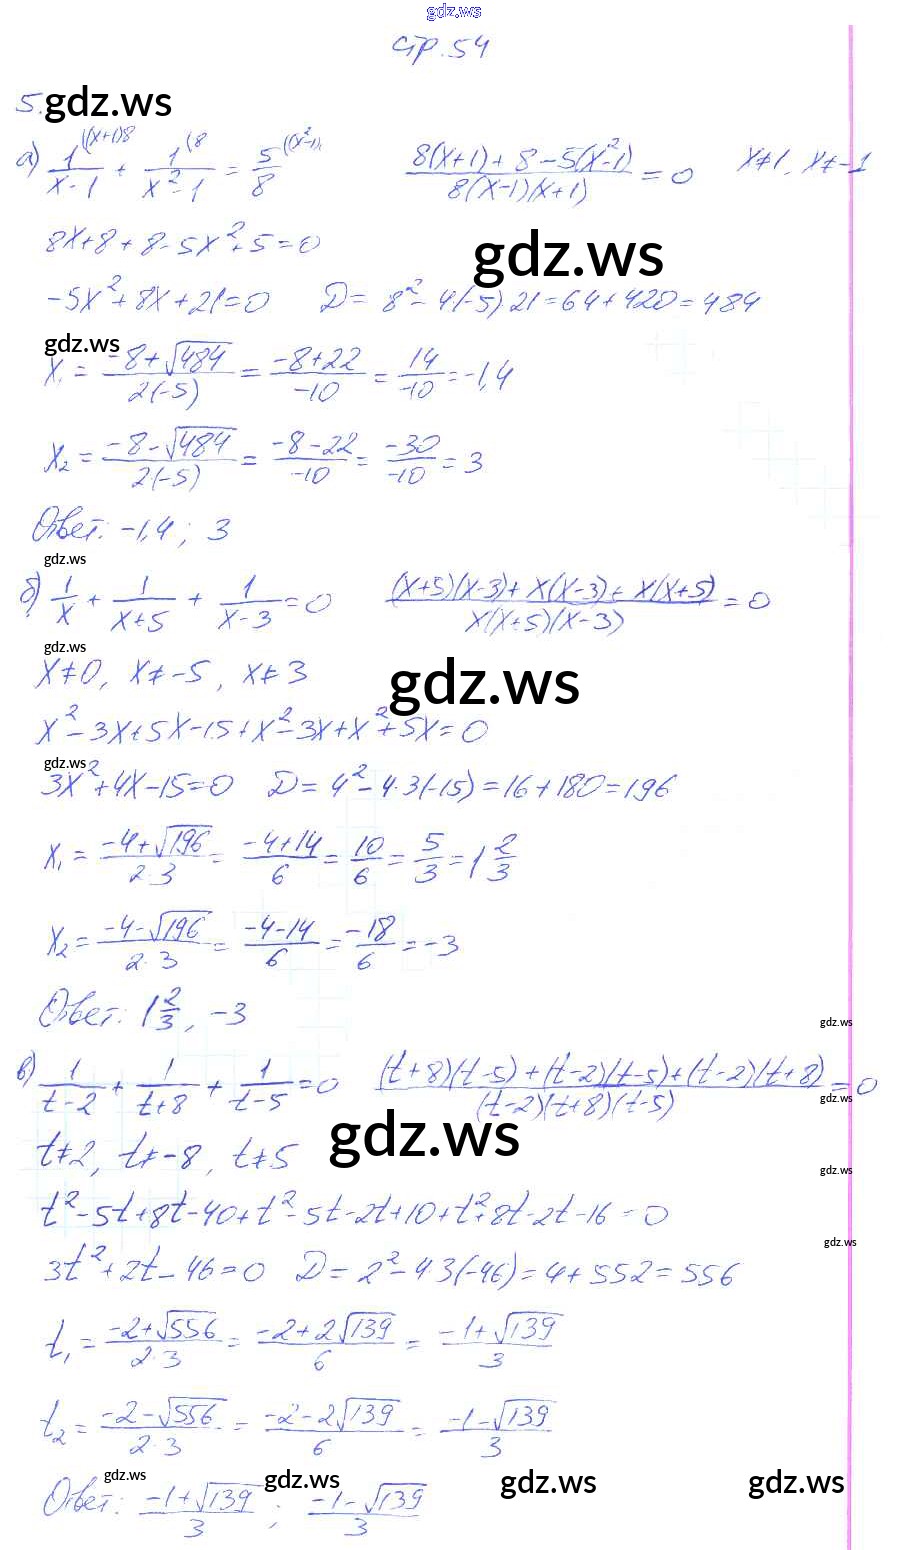 gdz.ws
стр. 54
5. gdz.ws
а) 1/(x-1) ((x+1)8 + 1/(x²-1) (8 = 5/8 ((x²-1) (8(x+1)+8-5(x²-1))/(8(x-1)(x+1)) = 0 x≠1, x≠-1
8x+8+8-5x²+5=0
gdz.ws
-5x²+8x+21=0 D= 8²-4(-5)21=64+420=484
gdz.ws
x₁ = (-8+√484)/(2(-5)) = (-8+22)/(-10) = 14/(-10) = -1,4
x₂ = (-8-√484)/(2·(-5)) = (-8-22)/(-10) = (-30)/(-10) = 3
Ответ: -1,4; 3
gdz.ws
б) 1/x + 1/(x+5) + 1/(x-3) = 0 ((x+5)(x-3)+x(x-3)+x(x+5))/(x(x+5)(x-3)) = 0
gdz.ws
x≠0, x≠-5, x≠3
gdz.ws
x²-3x+5x-15+x²-3x+x²+5x=0
gdz.ws
3x²+4x-15=0 D=4²-4·3(-15)=16+180=196
x₁ = (-4+√196)/(2·3) = (-4+14)/6 = 10/6 = 5/3 = 1 2/3
x₂ = (-4-√196)/(2·3) = (-4-14)/6 = -18/6 = -3
Ответ: 1 2/3, -3
gdz.ws
в) 1/(t-2) + 1/(t+8) + 1/(t-5) = 0 ((t+8)(t-5)+(t-2)(t-5)+(t-2)(t+8))/((t-2)(t+8)(t-5)) = 0
gdz.ws
gdz.ws
t≠2, t≠-8, t≠5
gdz.ws
t²-5t+8t-40+t²-5t-2t+10+t²+8t-2t-16=0
gdz.ws
3t²+2t-46=0 D=2²-4·3(-46)=4+552=556
t₁ = (-2+√556)/(2·3) = (-2+2√139)/6 = (-1+√139)/3
t₂ = (-2-√556)/(2·3) = (-2-2√139)/6 = (-1-√139)/3
gdz.ws gdz.ws gdz.ws gdz.ws
Ответ: (-1+√139)/3; (-1-√139)/3